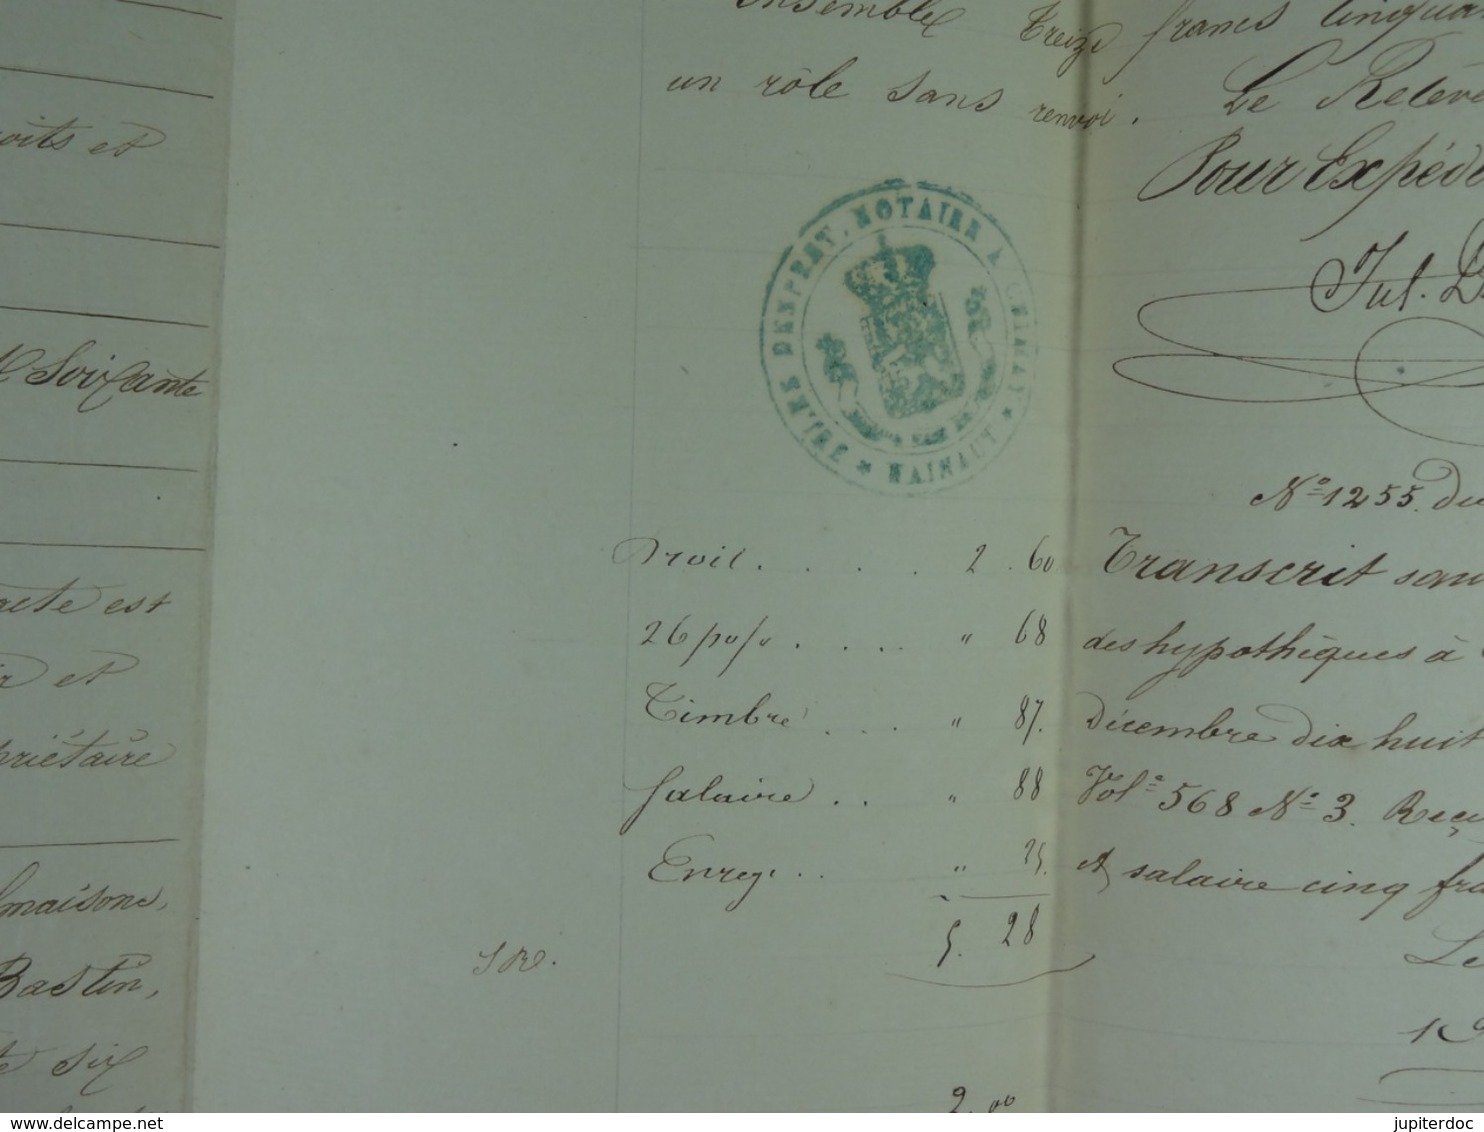 Ensemble treize francs cinqua
un rôle sans renvoi. Le Releve
Pour Expédi
Jul. D
oits et
Soixante
acte est
et
priétaire
maisons,
Bastin,
six
NOTAIRE A CHIMAY
* HAINAUT *
No 1255. du
Droit . . . . . 2 . 60
26 p%. . . . . " 68
Timbre . . . . " 87.
Salaire . . " 88
Enreg. . . " 25.
5. 28
2.00
Transcrit sau
des hypothèques à
décembre dix huit
Vole 568 No 3. Reçu
et salaire cinq fra
Le
jupiterdoc